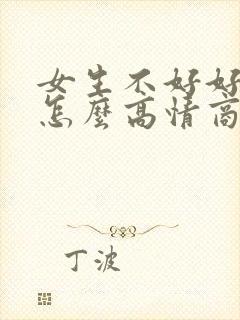 女生不好好
怎麼高情商
丁波